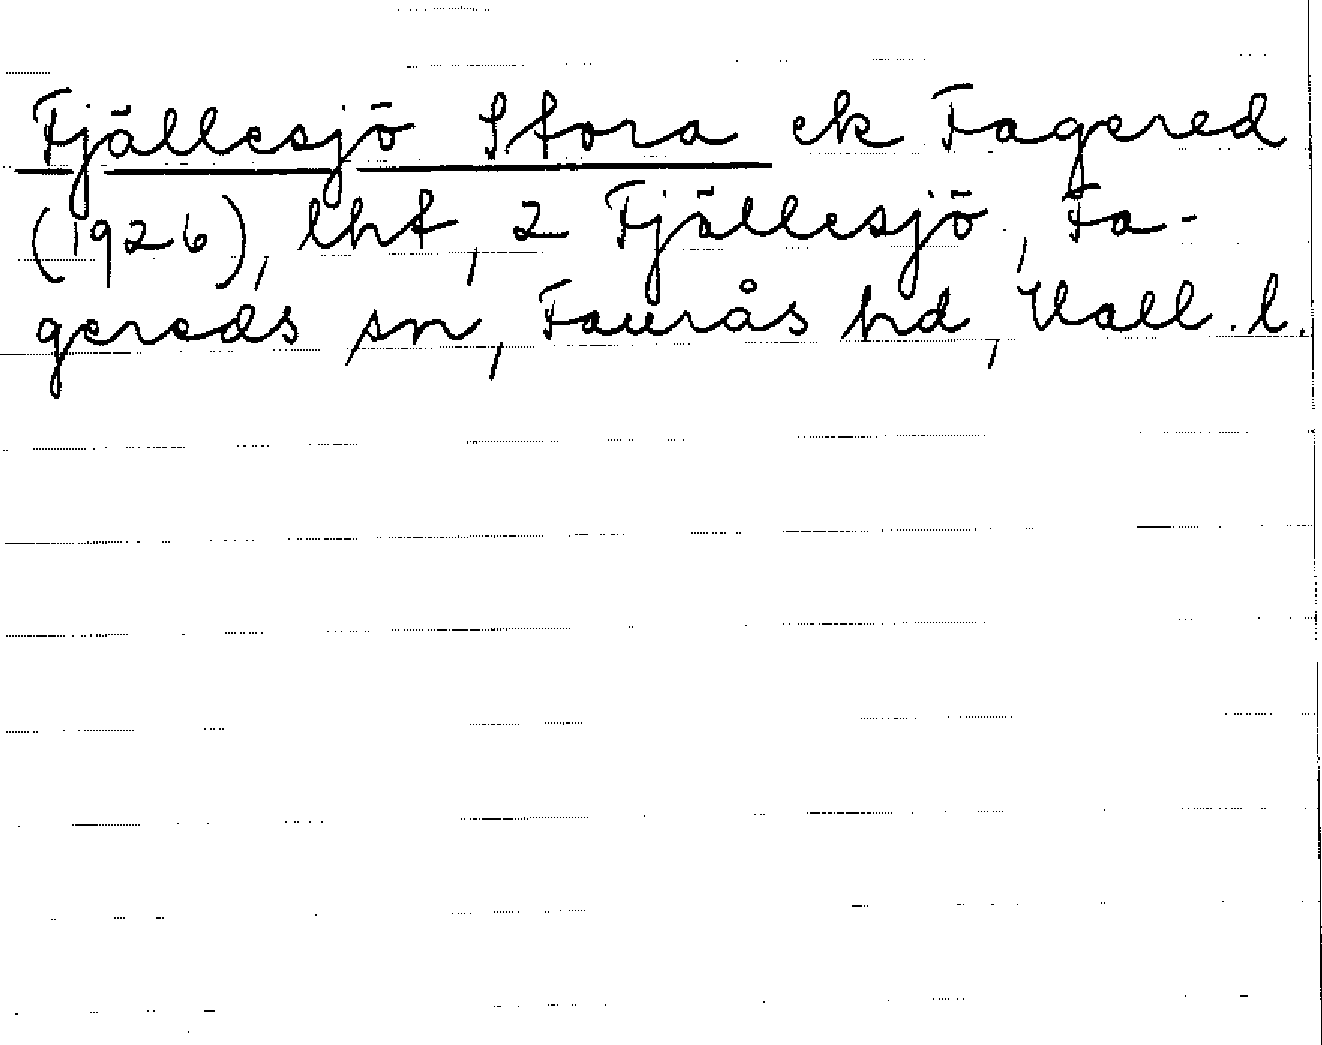 Fjällesjö Stora ek Fagered
(1926), lht, 2 Fjällesjö, Fa-
gereds sn, Faurås hd, Hall. l.